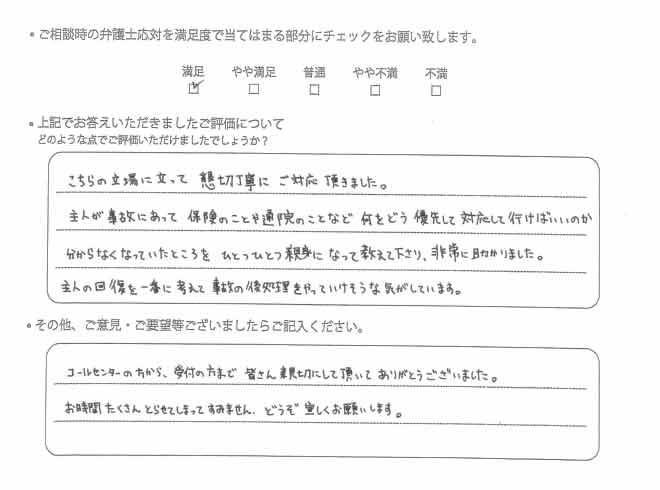 ・ご相談時の弁護士応対を満足度で当てはまる部分にチェックをお願い致します。
満足 やや満足 普通 やや不満 不満
・上記でお答えいただきましたご評価について
どのような点でご評価いただけましたでしょうか?
こちらの立場に立って 懇切丁寧に ご対応 頂きました。
主人が事故にあって 保険のことや通院のことなど 何をどう 優先して 対応して行けばいいのか
分からなくなっていたところを ひとつひとつ親身になって教えて下さり、非常に助かりました。
主人の回復を一番に考えて 事故の後処理をやっていけそうな気がしています。
・その他、ご意見・ご要望等ございましたらご記入ください。
コールセンターの方から、受付の方まで 皆さん親切にして頂いて ありがとうございました。
お時間たくさんとらせてしまってすみません。どうぞ宜しくお願いします。